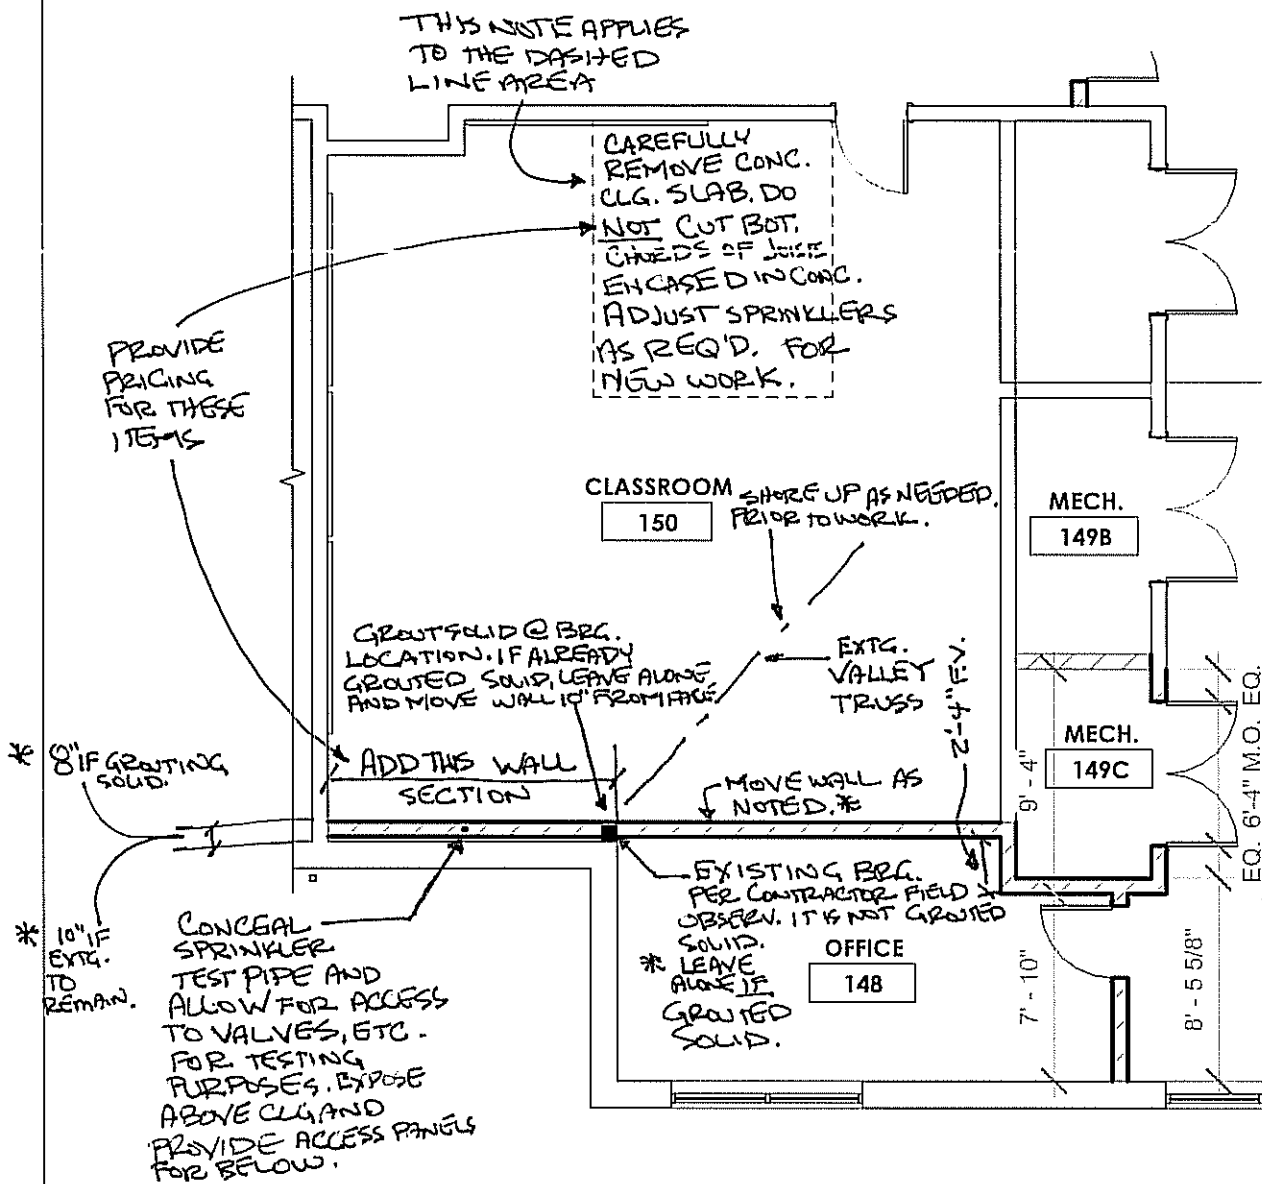 THIS NOTE APPLIES
TO THE DASHED
LINE AREA
CAREFULLY
REMOVE CONC.
CLG. SLAB. DO
NOT CUT BOT.
CHORDS OF JOIST
ENCASED IN CONC.
ADJUST SPRINKLERS
AS REQ'D. FOR
NEW WORK.
PROVIDE
PRICING
FOR THESE
ITEMS
CLASSROOM
150
SHORE UP AS NEEDED.
PRIOR TO WORK.
MECH.
149B
GROUT SOLID @ BRG.
LOCATION. IF ALREADY
GROUTED SOLID, LEAVE ALONE
AND MOVE WALL 10" FROM FACE
EXTG.
VALLEY
TRUSS
2'-4" V.I.F.
9' - 4"
MECH.
149C
EQ. 6'-4" M.O. EQ.
* 8" IF GROUTING
SOLID.
ADD THIS WALL
SECTION
MOVE WALL AS
NOTED. *
* 10" IF
EXTG.
TO
REMAIN.
CONCEAL
SPRINKLER
TEST PIPE AND
ALLOW FOR ACCESS
TO VALVES, ETC.
FOR TESTING
PURPOSES. EXPOSE
ABOVE CLG AND
PROVIDE ACCESS PANELS
FOR BELOW.
EXISTING BRG.
PER CONTRACTOR FIELD
OBSERV. IT IS NOT GROUTED
SOLID.
* LEAVE
ALONE IF
GROUTED
SOLID.
OFFICE
148
7' - 10"
8' - 5 5/8"